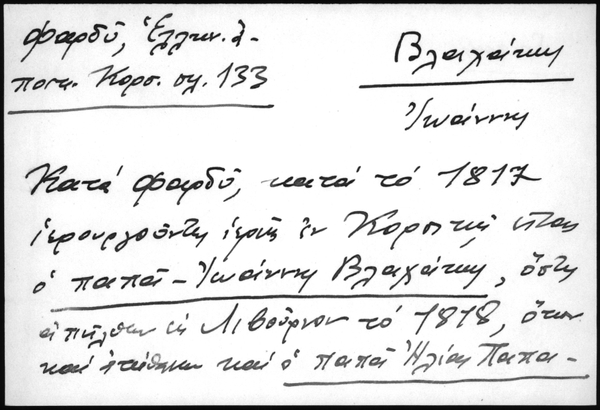 Φαρδῦ, Ἑλλην. ἀ-
ποικ. Κορσ. σελ. 133
Βλαχάκης
Ἰωάννης
Κατά Φαρδῦ, κατά τό 1817
ἱερουργοῦντες ἱερεῖς ἐν Κορσικῇ ἦταν
ὁ παπᾶ-Ἰωάννης Βλαχάκης, ὅστις
ἀπῆλθεν εἰς Λιβοῦρνον τό 1818, ὅπου
καί ἐτάφη καί ὁ παπᾶ Ἠλίας Παπα-